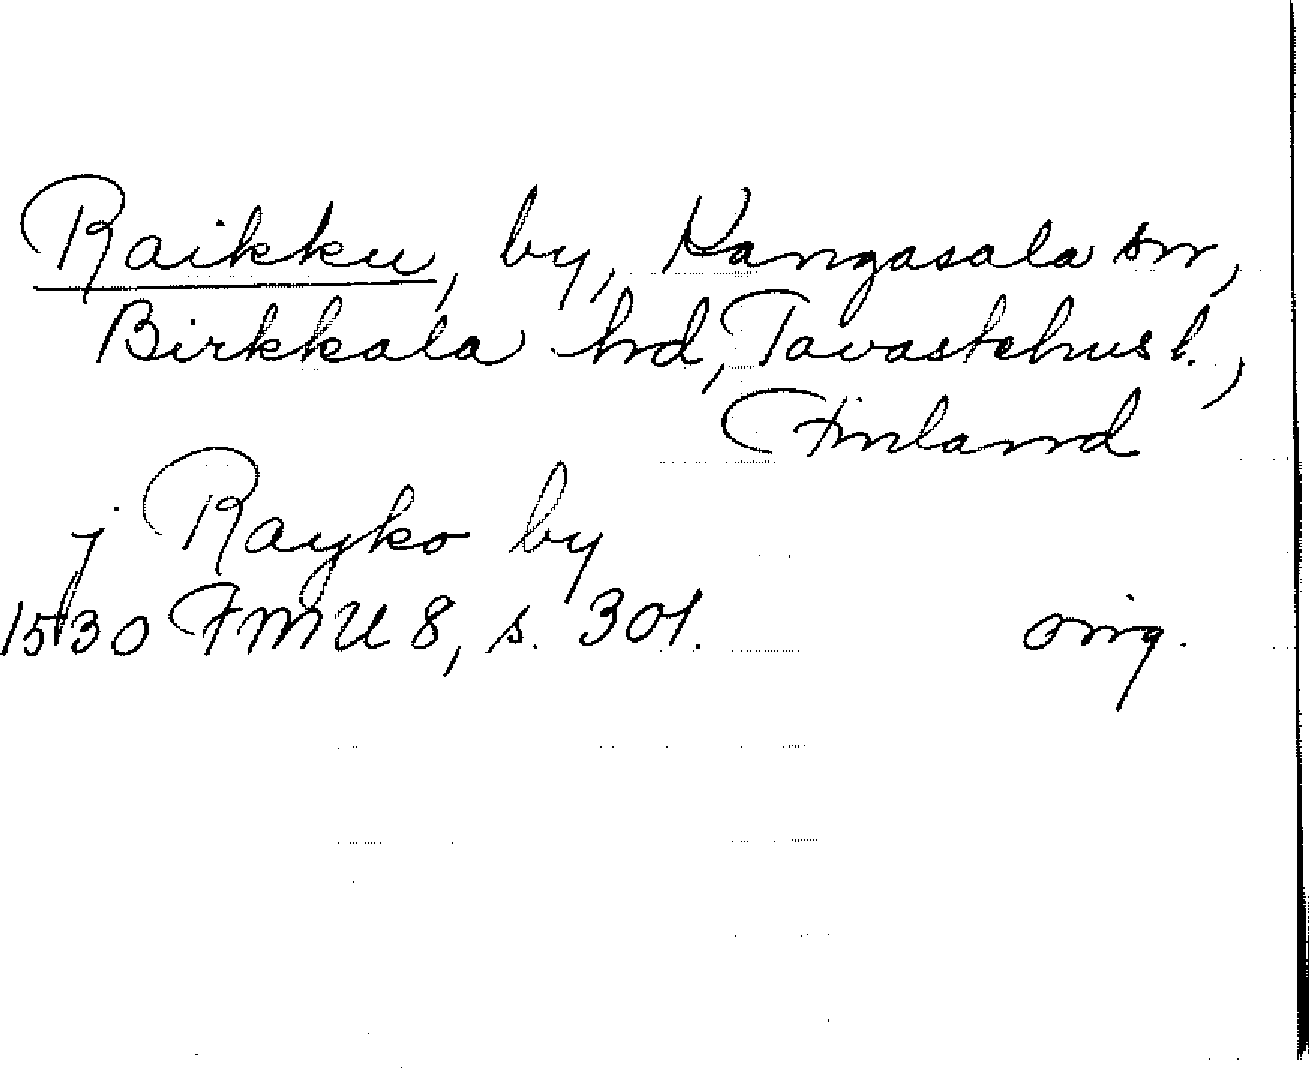 Raikku, by, Kangasala sn,
Birkkala hd, Tavastehus l.,
Finland
j Rayko by
1530 FMU 8, s. 301. orig.